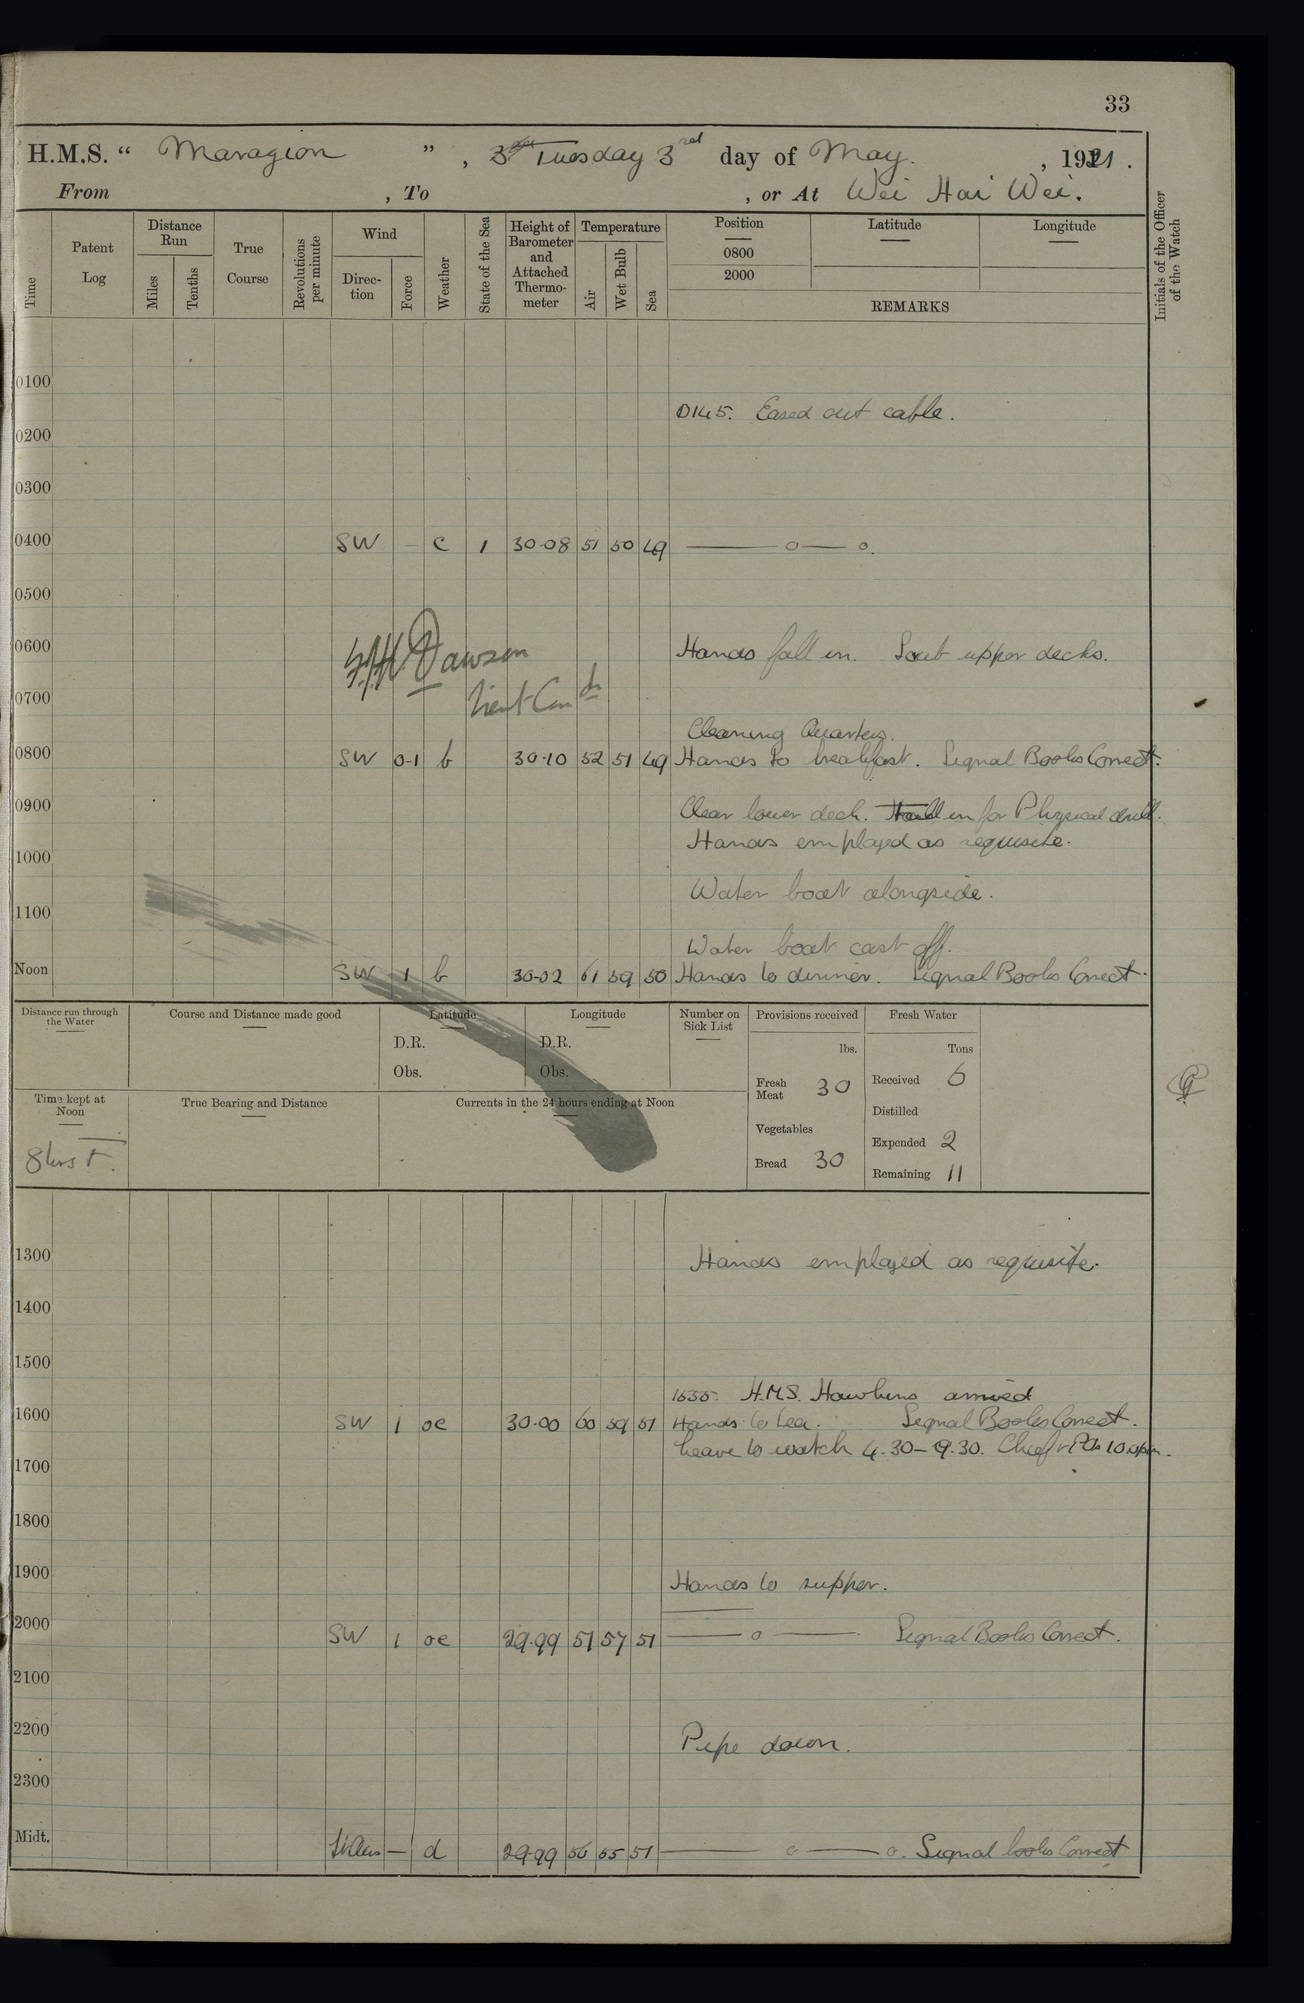 33
H.M.S. “ Marazion ” , Tuesday 3rd day of May. , 1921 .
From , To , or At Wei Hai Wei.
Time Patent Log Distance Run Miles Tenths True Course Revolutions per minute Wind Direc-tion Force Weather State of the Sea Height of Barometer and Attached Thermo-meter Temperature Air Wet Bulb Sea Position 0800 2000 Latitude Longitude REMARKS Initials of the Officer of the Watch
0100
0145. Eased out cable.
0200
0300
0400 SW – c 1 30·08 51 50 49 —— o — o.
0500
0600 Hands fall in. Scrub upper decks.
Dawson
Lieut-Comdr
0700
Cleaning Quarters.
0800 SW 0-1 b 30·10 52 51 49 Hands to breakfast. Signal Books Correct.
0900 Clear lower deck. in for Physical drill.
Hands employed as requisite.
1000
Water boat alongside.
1100
Water boat cast off.
Noon SW 1 b 30·02 61 59 50 Hands to dinner. Signal Books Correct.
Distance run through the Water Course and Distance made good Latitude D.R. Obs. Longitude D.R. Obs. Number on Sick List Provisions received lbs. Fresh Water Tons
Fresh Meat 30 Received 6
Time kept at Noon True Bearing and Distance Currents in the 24 hours ending at Noon
Distilled
Vegetables Expended 2
8hrs Bread 30 Remaining 11
1300 Hands employed as requisite.
1400
1500
H.M.S. Hawkins arrived
1600 SW 1 oc 30·00 60 59 51 Hands to tea. Signal Books Correct.
Leave to watch 4.30–9.30. Chief & POs
1700
1800
1900 Hands to supper.
2000 SW 1 oc 29·99 57 57 51 —— o —— Signal Books Correct.
2100
2200 Pipe down.
2300
Midt. — d 29·99 56 55 51 —— o —— o. Signal books Correct